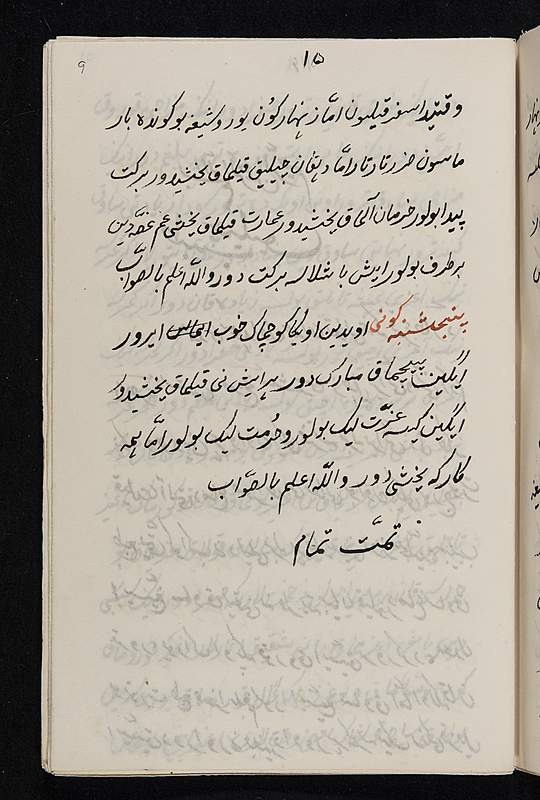 ۱۵
9
وقتیدا سفر قیلسون امّا زنهار کون یوروشیغه بو کونده بار
ماسون ضرر تارتار امّا دهقان چیلیق قیلماق یخشیدور برکت
پیدا بولور خرمان آلماق یخشیدور عمارت قیلماق یخشی غم غصّه دین
برطرف بولور ایش باشلاسه برکت دور والله اعلم بالصّواب
پنجشنبه کونی اویدین اویکا کوچماک خوب ایرور
ایگین پیچماق مبارک دور هر ایش نی قیلماق یخشیدور
ایگین کیسه عزّت لیک بولور و حرمت لیک بولور امّا همه
کارکه یخشی دور والله اعلم بالصّواب
تمّت تمام